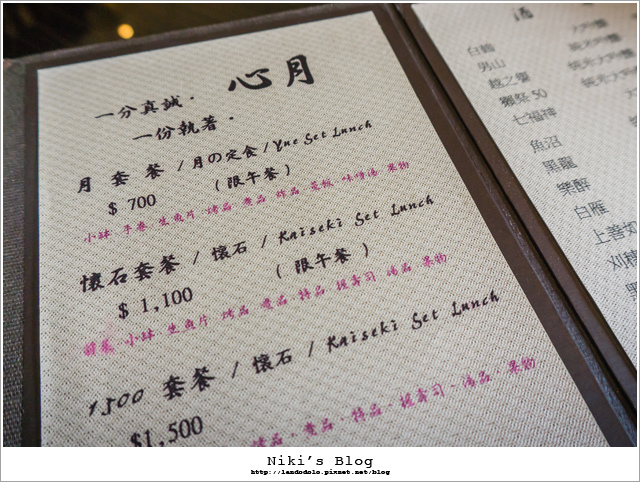 心月
一分真誠．
一份執著．
月 套 餐 / 月の定食 / Yue Set Lunch
$ 700 （限午餐）
小缽 手卷 生魚片 烤品 煮品 炸品 菜飯 味噌湯 果物
懷石套餐 / 懷石 / Kaiseki Set Lunch
$ 1,100 （限午餐）
前菜 小缽 生魚片 烤品 煮品 特品 握壽司 湯品 果物
1500 套餐 / 懷石 / Kaiseki Set Lunch
$1,500
烤品．煮品．特品．握壽司．湯品．果物
酒
白鶴
男山
越之譽
獺祭 50
七福神
魚沼
黑龍
樂醉
白雁
上善如
Niki's Blog
http://landodolo.pixnet.net/blog